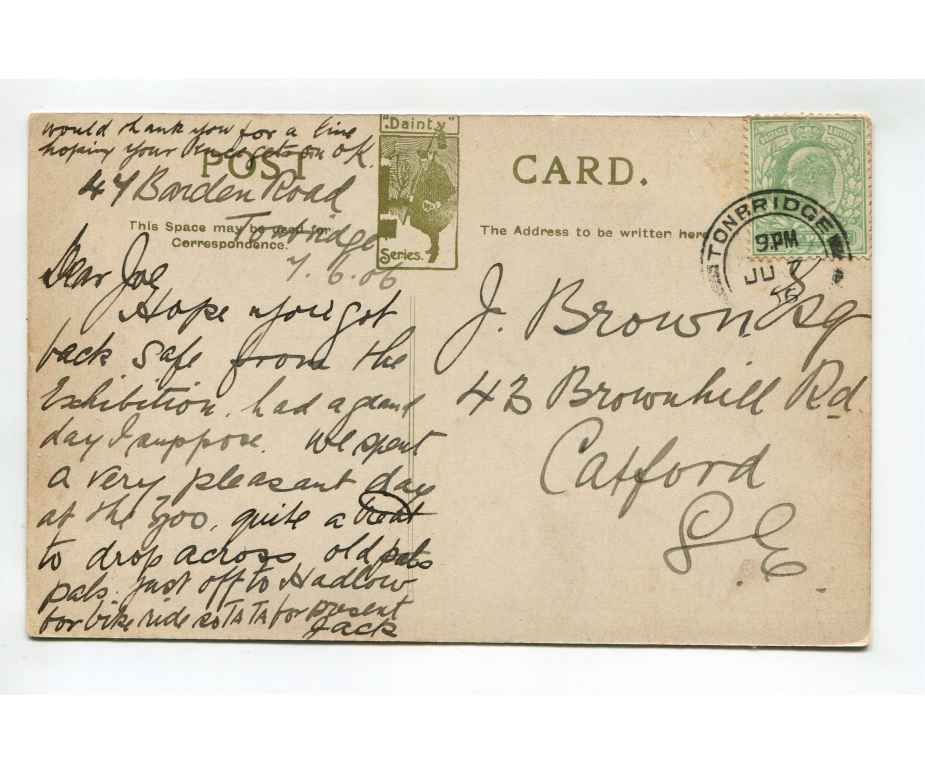 would thank you for a line
hoping your knee gets on OK.
POST
"Dainty"
Series.
CARD.
47 Barden Road
Tonbridge
7.6.06
This Space may be used for
Correspondence.
The Address to be written here
TONBRIDGE
9.PM
JU 7
06
Dear Joe
Hope you got
back safe from the
Exhibition. had a grand
day I suppose. We spent
a very pleasant day
at the Zoo. quite a treat
to drop across old pals
pals. Just off to Hadlow
for bike ride so TA TA for present
Jack
J. Brown Esq
43 Brownhill Rd
Catford
S.E